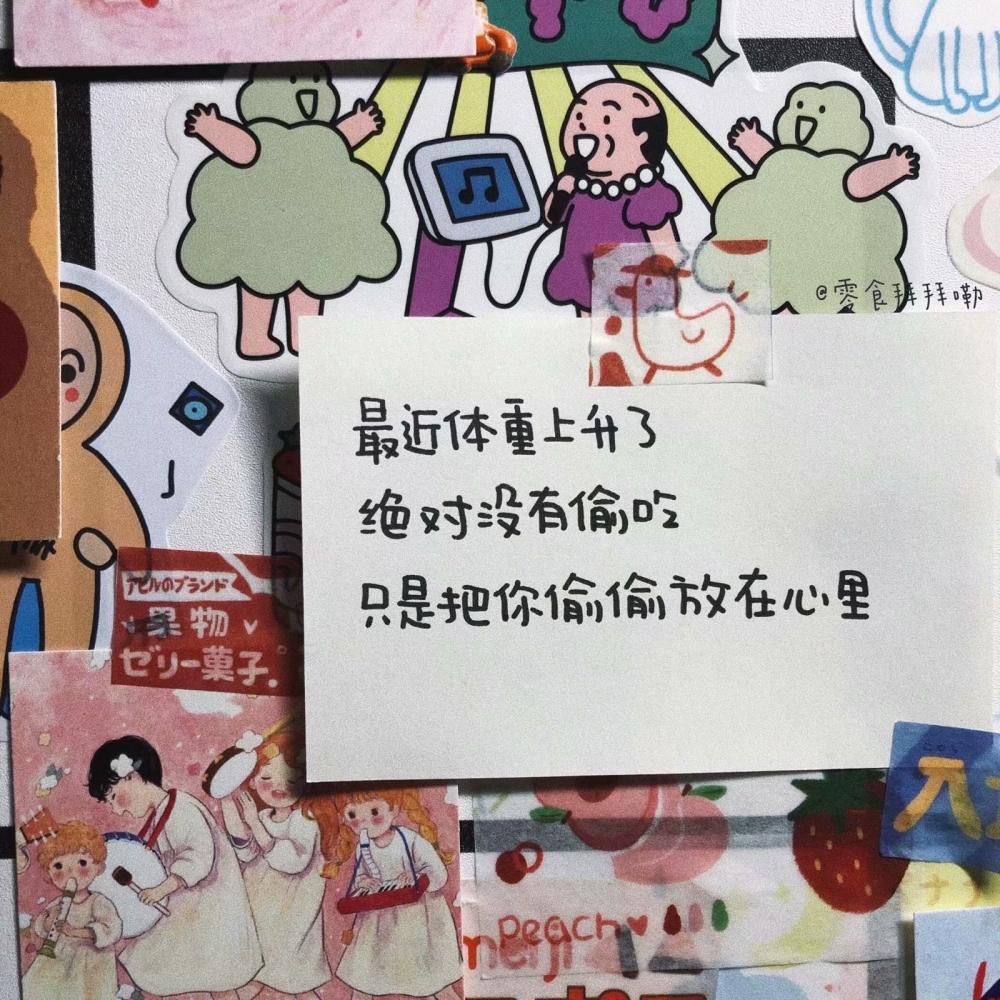 @零食拜拜嘞
最近体重上升了
绝对没有偷吃
只是把你偷偷放在心里
アピルのブランド
果物
ゼリー菓子。
peach
meiji